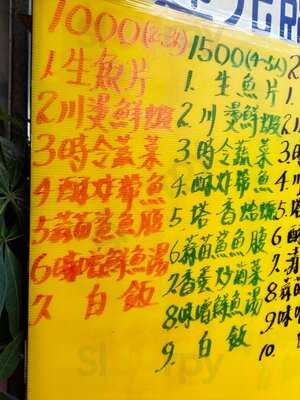 1000(2-3人)
1生魚片
2川燙鮮蝦
3時令蔬菜
4酥炸帶魚
5蒜苗鯊魚腩
6味噌鮮魚湯
7.白飯
1500(4-5人)
1.生魚片
2.川燙鮮蝦
3.時令蔬菜
4.酥炸帶魚
5塔香蛤蠣
6蒜苗鯊魚腩
7香蛋炒菌菜
8.味噌鮮魚湯
9.白飯
2
1.
2.
3.
4.
5
6
7
8蒜
9味
10.